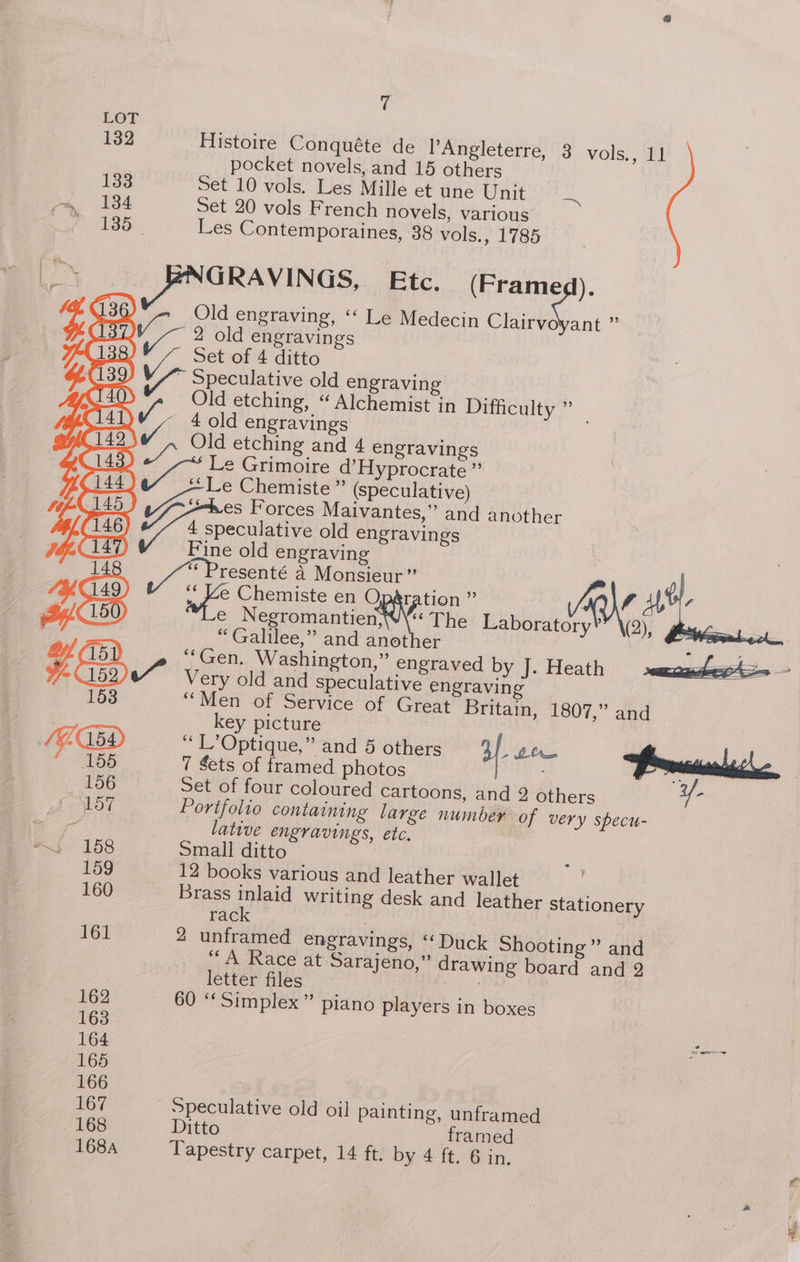 7
LOT
132 Histoire Conquête de l’Angleterre, 3 vols., 11
pocket novels, and 15 others
133 Set 10 vols. Les Mille et une Unit
134 Set 20 vols French novels, various
135 Les Contemporaines, 38 vols., 1785
ENGRAVINGS, Etc. (Framed).
136 Old engraving, “ Le Medecin Clairvoyant ”
137 2 old engravings
138 Set of 4 ditto
139 Speculative old engraving
140 Old etching, “ Alchemist in Difficulty ”
141 4 old engravings
142 Old etching and 4 engravings
143 “ Le Grimoire d’Hyprocrate ”
144 “ Le Chemiste ” (speculative)
145 “Les Forces Maivantes,” and another
146 4 speculative old engravings
147 Fine old engraving
148 “ Presenté à Monsieur ”
149 “ Le Chemiste en Operation ”
150 “Le Negromantien,” “ The Laboratory ” (2),
“ Galilee,” and another
151 “ Gen. Washington,” engraved by J. Heath
152 Very old and speculative engraving
153 “ Men of Service of Great Britain, 1807,” and
key picture
154 “ L’Optique,” and 5 others
155 7 sets of framed photos
156 Set of four coloured cartoons, and 2 others
157 Portfolio containing large number of very specu-
lative engravings, etc.
158 Small ditto
159 12 books various and leather wallet
160 Brass inlaid writing desk and leather stationery
rack
161 2 unframed engravings, “ Duck Shooting ” and
“ A Race at Sarajeno,” drawing board and 2
letter files
162 60 “ Simplex ” piano players in boxes
163
164
165
166
167 Speculative old oil painting, unframed
168 Ditto framed
168A Tapestry carpet, 14 ft. by 4 ft. 6 in.